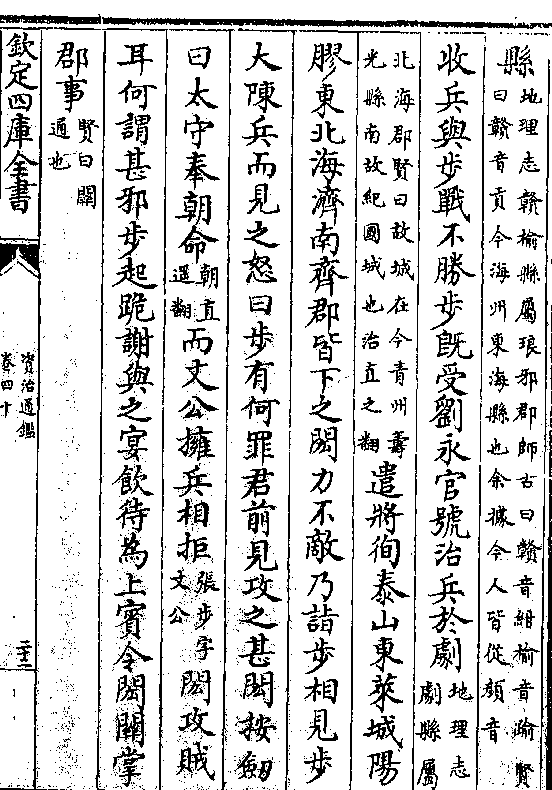 縣地理志贛榆縣屬琅邪郡師古曰贛音紺榆音踰賢曰贛音貢今海州東海縣也余據今人皆從顔音
收兵與步戰不勝步既受劉永官號治兵於劇地理志劇縣屬
北海郡賢曰故城在今青州壽光縣南故紀國城也治直之翻遣將徇泰山東萊城陽
膠東北海濟南齊郡皆下之閎力不敵乃詣步相見步
大陳兵而見之怒曰步有何罪君前見攻之甚閎按劒
曰太守奉朝命朝直遥翻而文公擁兵相拒張步字文公閎攻賊
耳何謂甚邪步起跪謝與之宴飲待為上賓令閎關掌
郡事賢曰關通也
欽定四庫全書
資治通鑑
卷四十
二十三